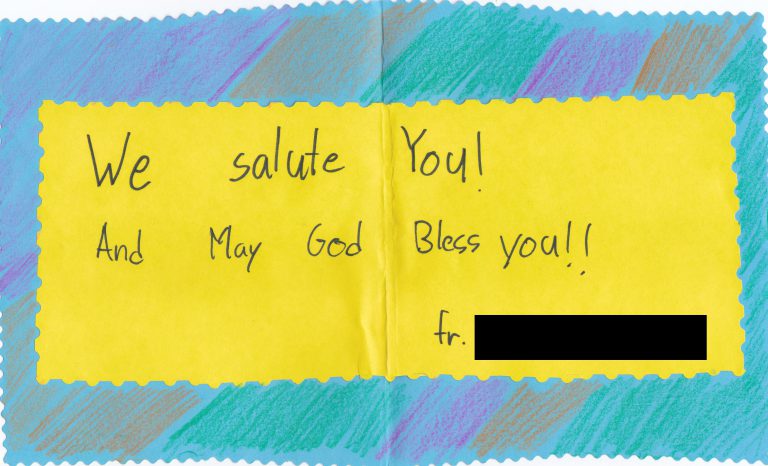 We salute You!
And May God Bless you!!
fr.